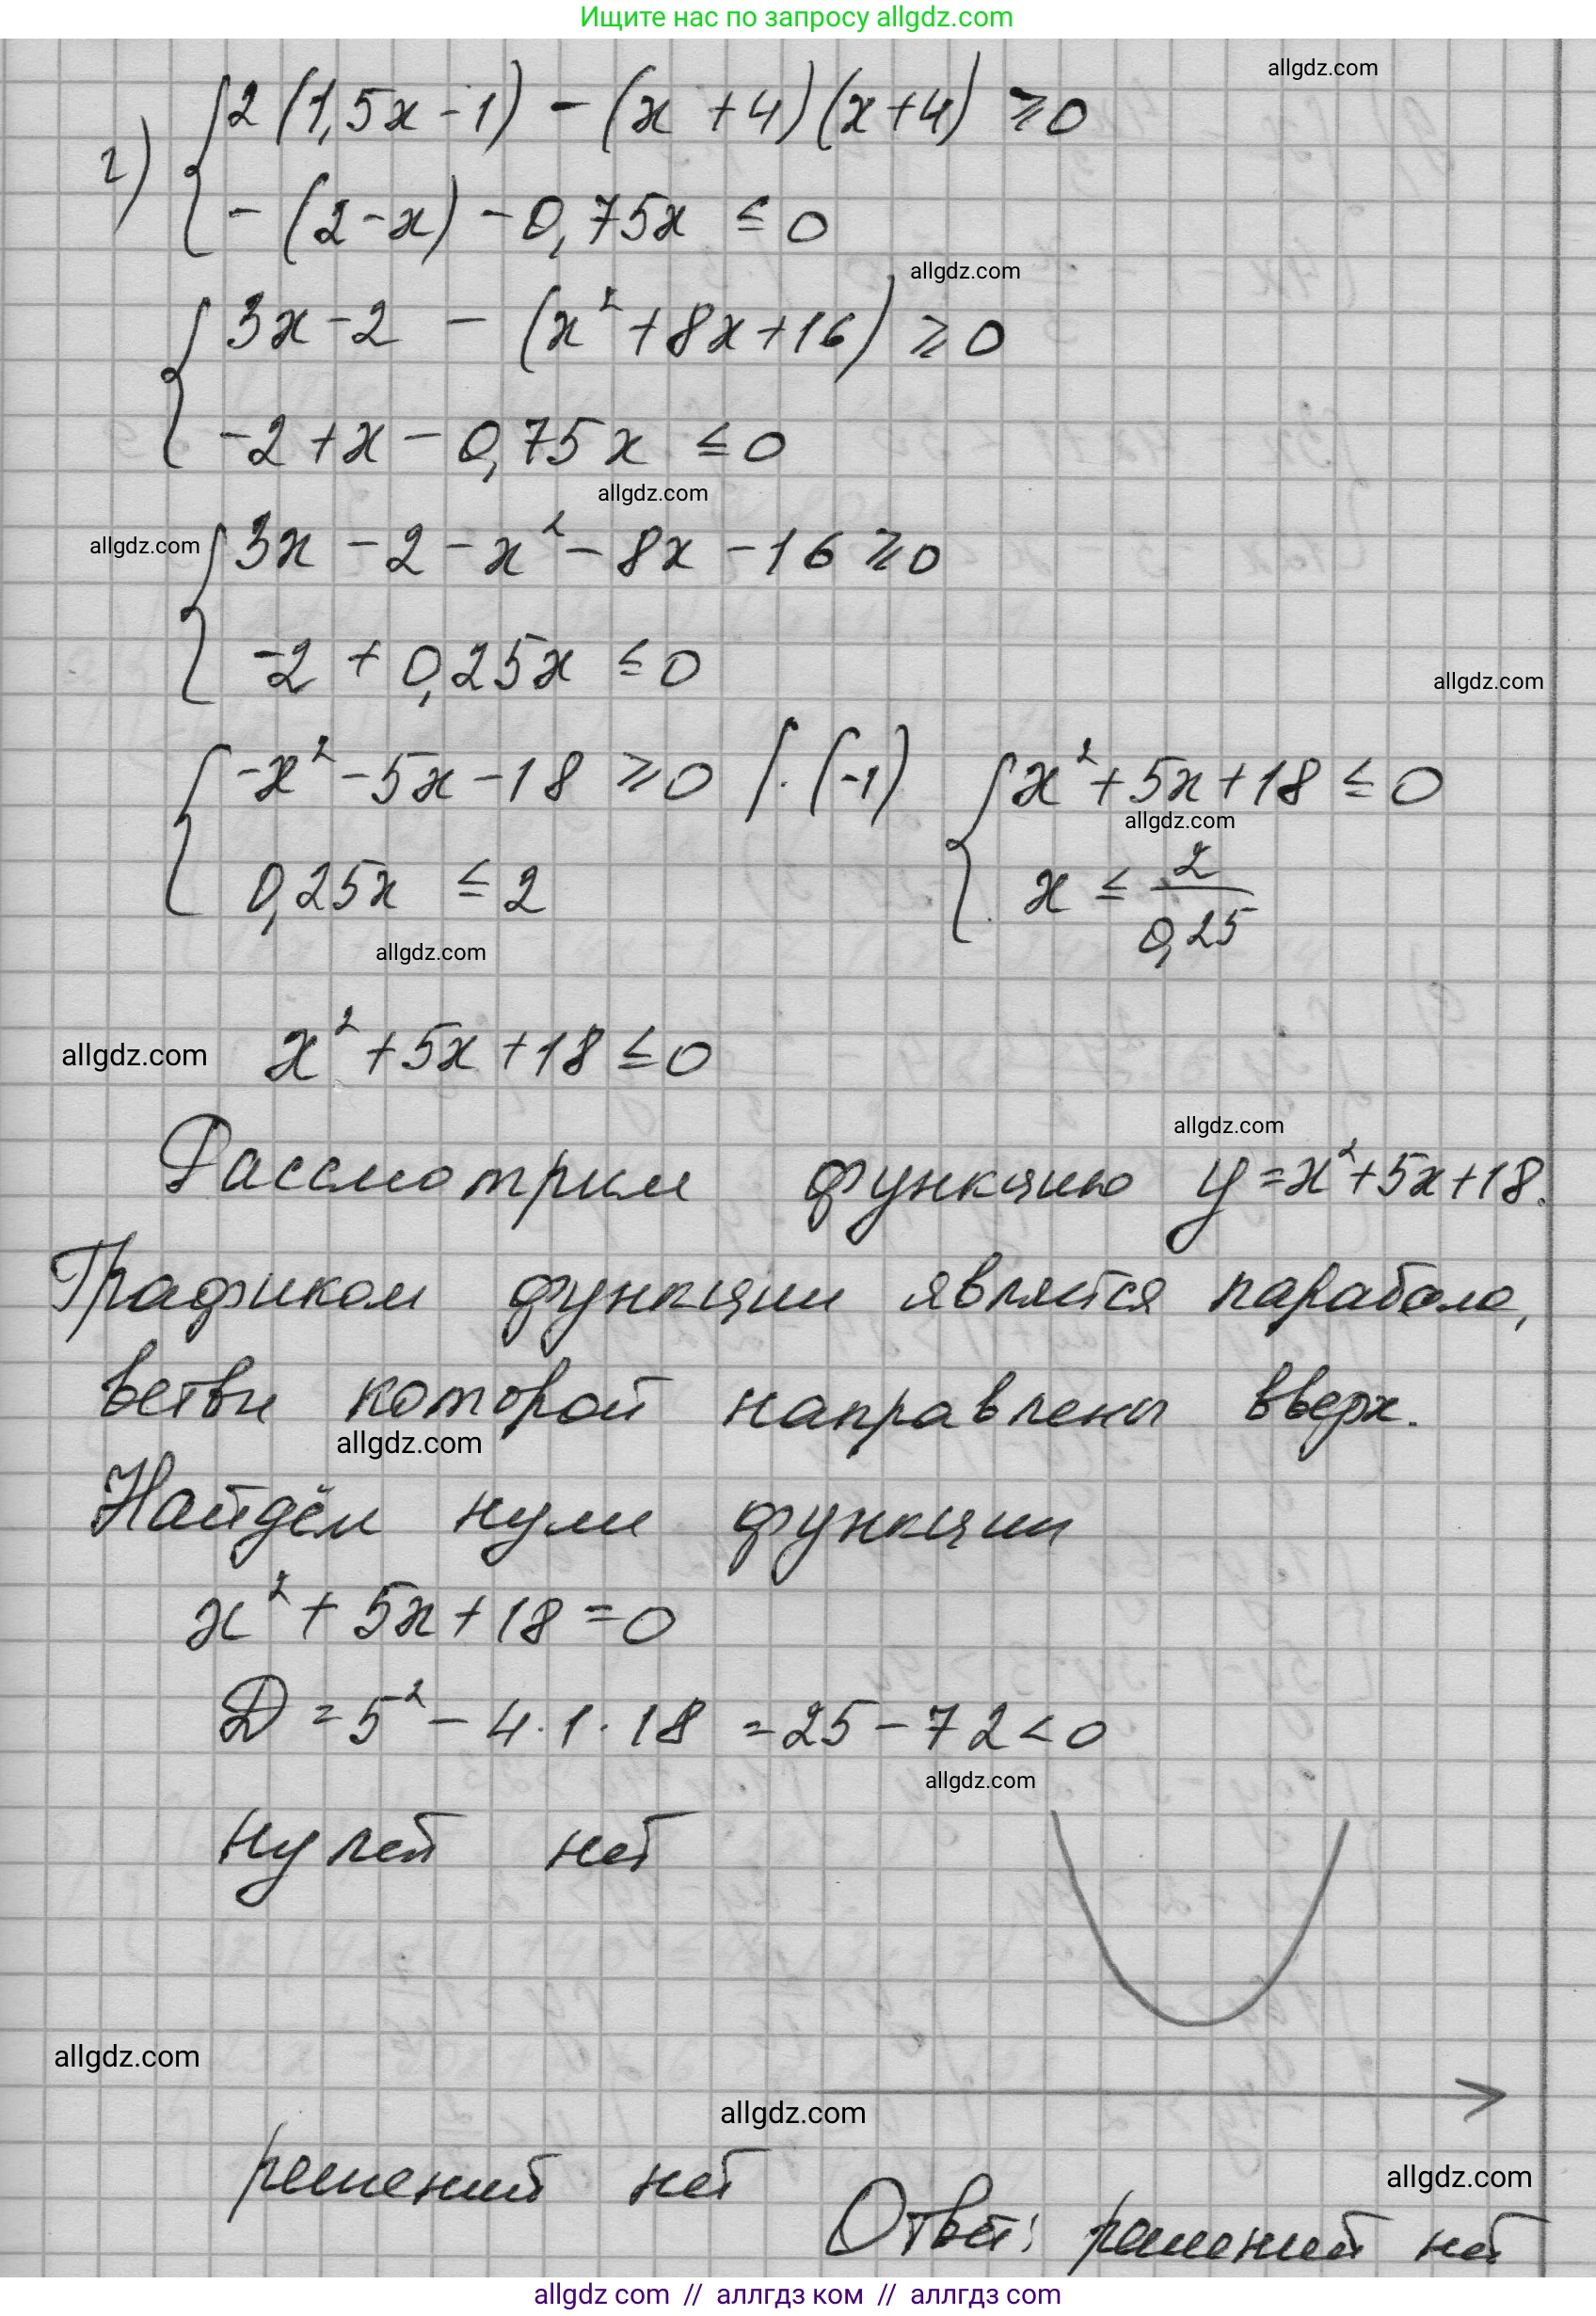 Ищите нас по запросу allgdz.com
allgdz.com
г) { 2(1,5x-1) - (x+4)(x+4) ≥ 0
-(2-x) - 0,75x ≤ 0
allgdz.com
{ 3x-2 - (x²+8x+16) ≥ 0
-2+x-0,75x ≤ 0
allgdz.com
allgdz.com
{ 3x-2-x²-8x-16 ≥ 0
-2+0,25x ≤ 0
allgdz.com
{ -x²-5x-18 ≥ 0 |·(-1) { x²+5x+18 ≤ 0
allgdz.com
0,25x ≤ 2 x ≤ 2/0,25
allgdz.com
allgdz.com x²+5x+18 ≤ 0
allgdz.com
Рассмотрим функцию y=x²+5x+18.
Графиком функции является парабола,
ветви которой направлены вверх.
allgdz.com
Найдём нули функции
x²+5x+18=0
D=5²-4·1·18=25-72<0
allgdz.com
нулей нет
allgdz.com
allgdz.com
решений нет
allgdz.com
Ответ: решений нет
allgdz.com // аллгдз ком // allgdz.com